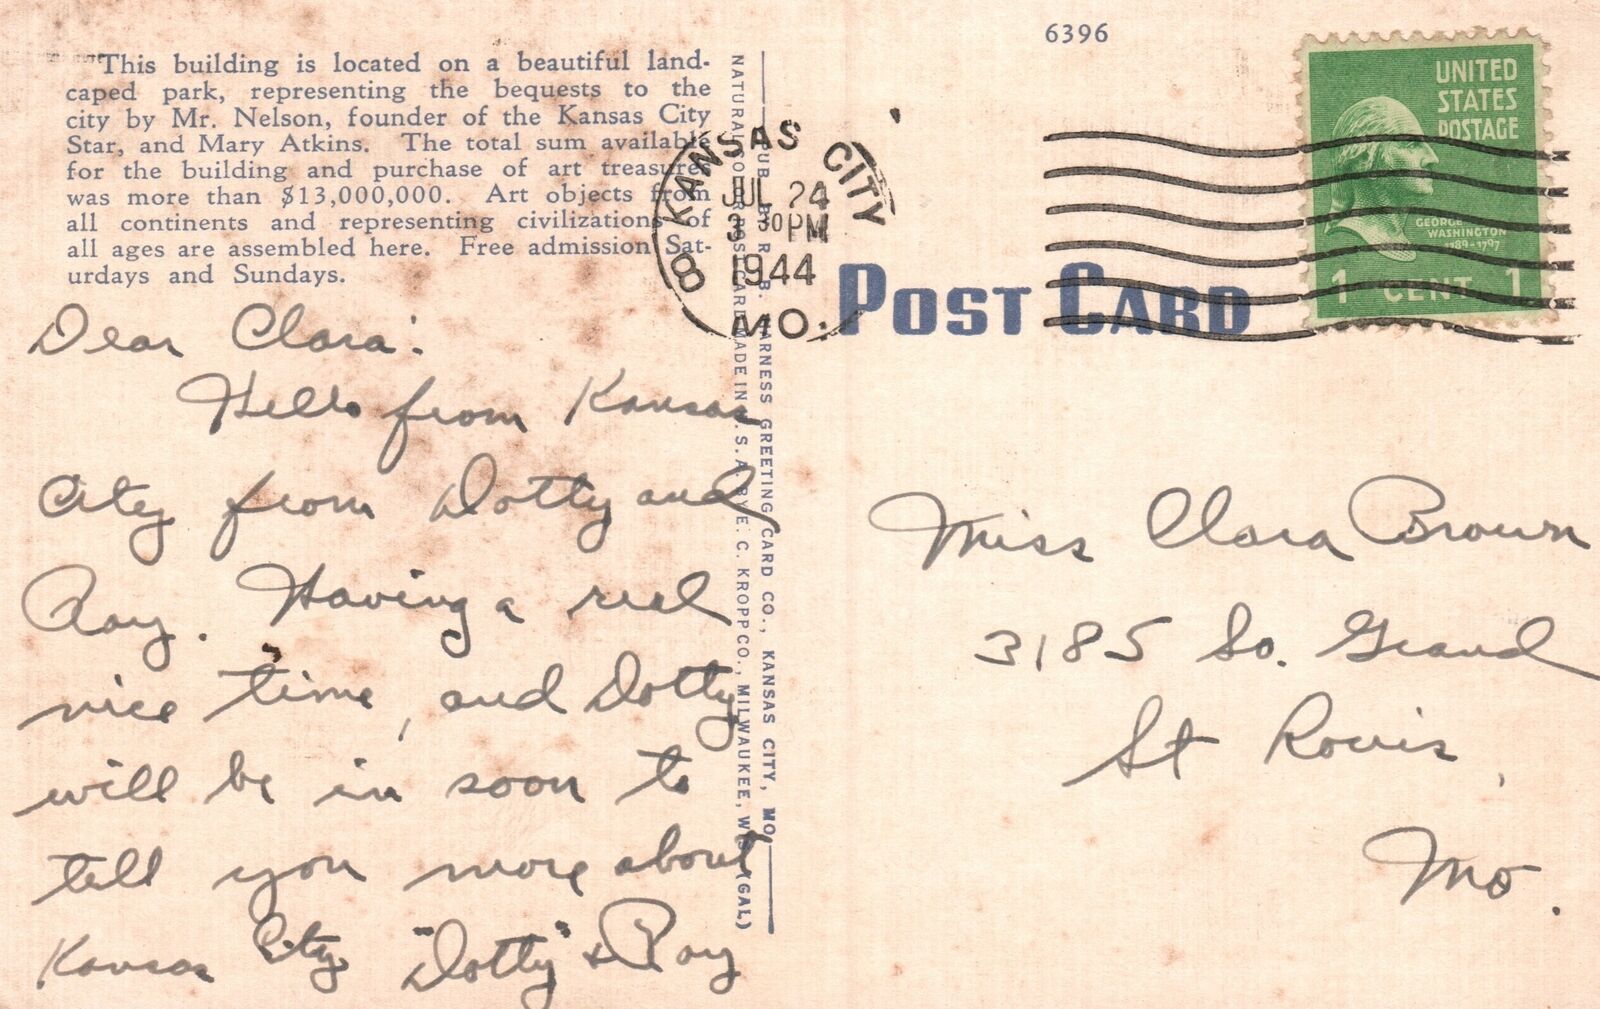 6396
"This building is located on a beautiful land-
caped park, representing the bequests to the
city by Mr. Nelson, founder of the Kansas City
Star, and Mary Atkins. The total sum available
for the building and purchase of art treasures
was more than $13,000,000. Art objects from
all continents and representing civilizations of
all ages are assembled here. Free admission Sat-
urdays and Sundays.
Dear Clara:
Hello from Kansas
City from Dotty and
Ray. Having a real
nice time, and Dotty
will be in soon to
tell you more about
Kansas City "Dotty" & Ray
PUB. BY R. B. HARNESS GREETING CARD CO., KANSAS CITY, MO.
NATURAL COLOR POST CARD MADE IN U.S.A. BY E. C. KROPP CO., MILWAUKEE, WIS. (GAL)
KANSAS CITY 8
JUL 24
3 30 PM
1944
MO.
POST CARD
UNITED
STATES
POSTAGE
GEORGE
WASHINGTON
1789-1797
1 CENT 1
Miss Clara Brown
3185 So. Grand
St Louis,
Mo.